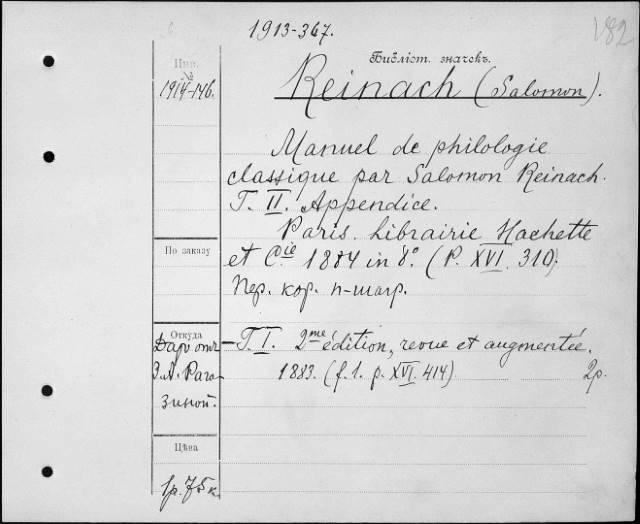 1913-367.
182
Инв.
№
1914-146.
Библіст. значекъ.
Reinach (Salomon).
Manuel de philologie
classique par Salomon Reinach.
T. II. Appendice.
Paris. Librairie Hachette
et Cie 1884 in 8º. (P. XVI. 310).
По заказу
Пер. кор. п-шагр.
Откуда
Даръ отъ
З. А. Раго-
зиной.
— T. I. 2me édition, revue et augmentée.
1883. (f. 1. p. XVI. 414)
2р.
Цѣна
1р. 75к.